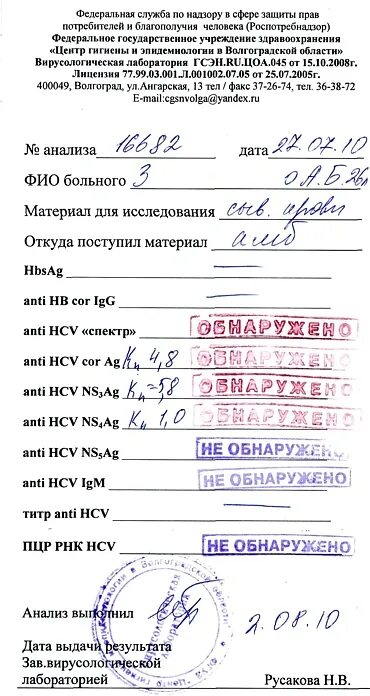 Федеральная служба по надзору в сфере защиты прав
потребителей и благополучия человека (Роспотребнадзор)
Федеральное государственное учреждение здравоохранения
«Центр гигиены и эпидемиологии в Волгоградской области»
Вирусологическая лаборатория ГСЭН.RU.ЦОА.045 от 15.10.2008г.
Лицензия 77.99.03.001.Л.001002.07.05 от 25.07.2005г.
400049, Волгоград, ул.Ангарская, 13 тел / факс 37-26-74, тел. 36-38-72
E-mail:cgsnvolga@yandex.ru
№ анализа 16682 дата 27.07.10
ФИО больного З о А.Б. 26л
Материал для исследования сыв. крови
Откуда поступил материал амб
HbsAg —
anti HB cor IgG —
anti HCV «спектр» ОБНАРУЖЕНО
anti HCV cor Ag Кп 4,8 ОБНАРУЖЕНО
anti HCV NS3Ag Кп =5,8 ОБНАРУЖЕНО
anti HCV NS4Ag Кп 1,0 ОБНАРУЖЕНО
anti HCV NS5Ag НЕ ОБНАРУЖЕНО
anti HCV IgM НЕ ОБНАРУЖЕНО
титр anti HCV —
ПЦР РНК HCV НЕ ОБНАРУЖЕНО
Анализ выполнил 2.08.10
Дата выдачи результата
Зав.вирусологической
лабораторией Русакова Н.В.